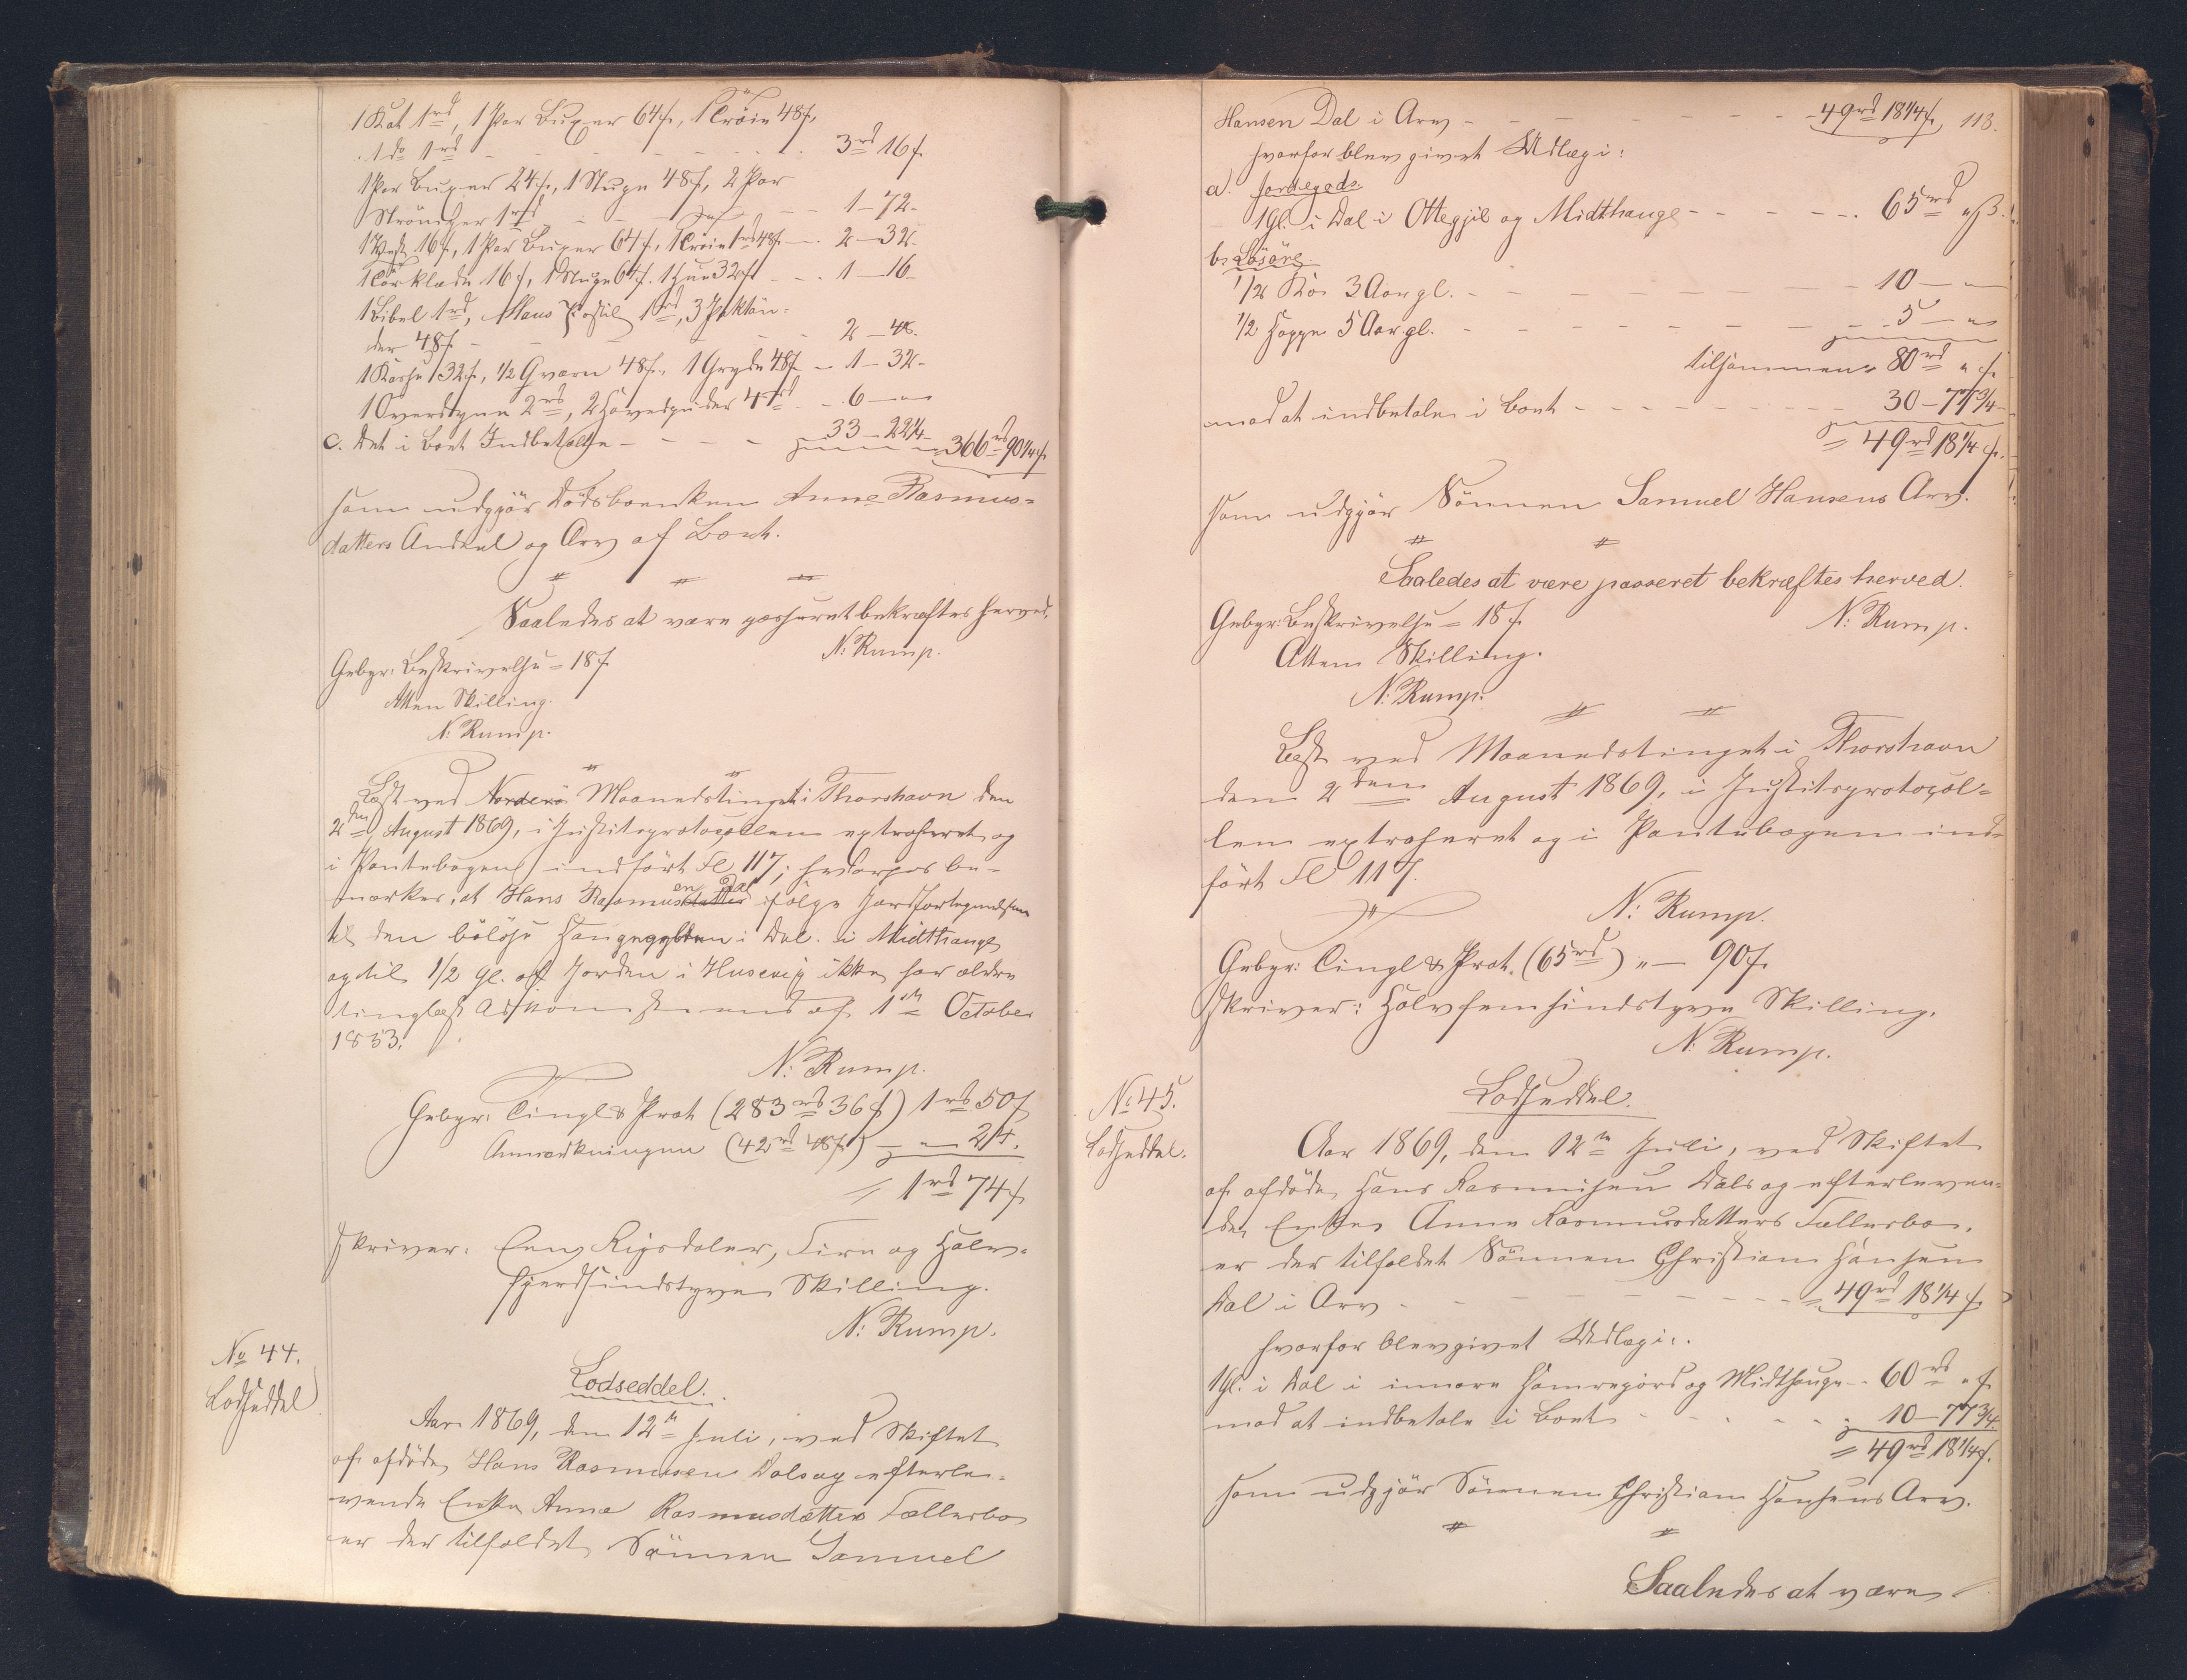 1 Kat 1rd, 1 Par Buxer 64ß, 1 Tröie 48ß,
1 do 1rd - - - 3rd 16ß
1 Par Buxer 24ß, 1 Stuge 48ß, 2 Par
Strömper 1rd - - - 1-72-
1 Vest 16ß, 1 Par Buxer 64ß, 1 Tröie 1rd 48ß - 2-32-
1 Törklæde 16ß, 1 Stuge 64ß, 1 Hue 32ß - - 1-16-
1 Bibel 1rd, Huus Postil 1rd, 3
der 48ß - - - 2-48-
1 Kasse 32ß, 1/2 Qværn 48ß, 1 Gryde 48ß - 1-32-
1 Overdyne 2rd, 2 Hovedpuder 4rd - 6-"-
c. Det i Boet Indbetalte - - - 33-22 1/4 = 366rd 90 1/4ß
som udgjør Dödsboenken Anne Rasmus-
datters Andeel og Arv af Boet.
Saaledes at være passeret bekræftes herved.
N: Rump.
Gebyr: Beskrivelse = 18ß
Atten Skilling.
N: Rump.
Læst ved Norderö Maanedstinget i Thorshavn den
2den August 1869, i Justitsprotocollen extraheret og
i Pantebogen indført Fl 117; hvorhos be-
mærkes, at Hans Rasmusdatter en Dal ifölge Jordfortegnelsen
til den i Dal i Midthauge
og til 1/2 Gl. af Jorden i Husevig ikke har ældre
tinglæst Adkomst end af 1ste October
1853.
N: Rump.
Gebyr: Tingl & Prot (283rd 36ß) 1rd 50ß
Anmærkningen (42rd 48ß) - " 24.
= 1rd 74ß
skriver: Een Rigsdaler, Fire og Halv-
fjerdsindstyve Skilling.
N: Rump.
No 44.
Lodseddel
Lodseddel.
Aar 1869, den 12te Juli, ved Skiftet
af afdöde Hans Rasmusen Dals og efterle-
vende Enke Anne Rasmusdatters Fællesbo
er der tilfaldet Sönnen Samuel
113.
Hansen Dal i Arv - - - 49rd 18 1/4ß
hvorfor blev givet Udlæg i:
a. Jordegods.
1 Gl. i Dal i Ottegjil og Midthauge - - - 65rd "ß.
b. Lösöre.
1/2 Ko 3 Aar gl. - - - 10-"-
1/2 Hoppe 5 Aar gl. - - - 5-"-
tilsammen = 80rd "ß
mod at indbetale i Boet - - - 30-77 3/4-
= 49rd 18 1/4ß.
som udgjör Sönnen Samuel Hansens Arv.
Saaledes at være passeret bekræftes herved.
Gebyr: Beskrivelse = 18ß
N: Rump.
Atten Skilling.
N: Rump.
Læst ved Maanedstinget i Thorshavn
den 2den August 1869, i Justitsprotocol-
len extraheret og i Pantebogen ind-
fört Fl 117.
N: Rump.
Gebyr: Tingl & Prot. (65rd) "- 90ß.
skriver: Halvfemsindstyve Skilling.
N: Rump.
No 45.
Lodseddel.
Lodseddel.
Aar 1869, den 12te Juli, ved Skiftet
af afdöde Hans Rasmusen Dals og efterleven-
de Enke Anne Rasmusdatters Fællesbo,
er der tilfaldet Sönnen Christian Hansen
Dal i Arv - - - 49rd 18 1/4ß
hvorfor blev givet Udlæg i:
1 Gl. i Dal i innare Hamregjærd og Midthauge - 60rd "ß
mod at indbetale i Boet - - - 10-77 3/4
= 49rd 18 1/4ß.
som udgjör Sönnen Christian Hansens Arv.
Saaledes at være